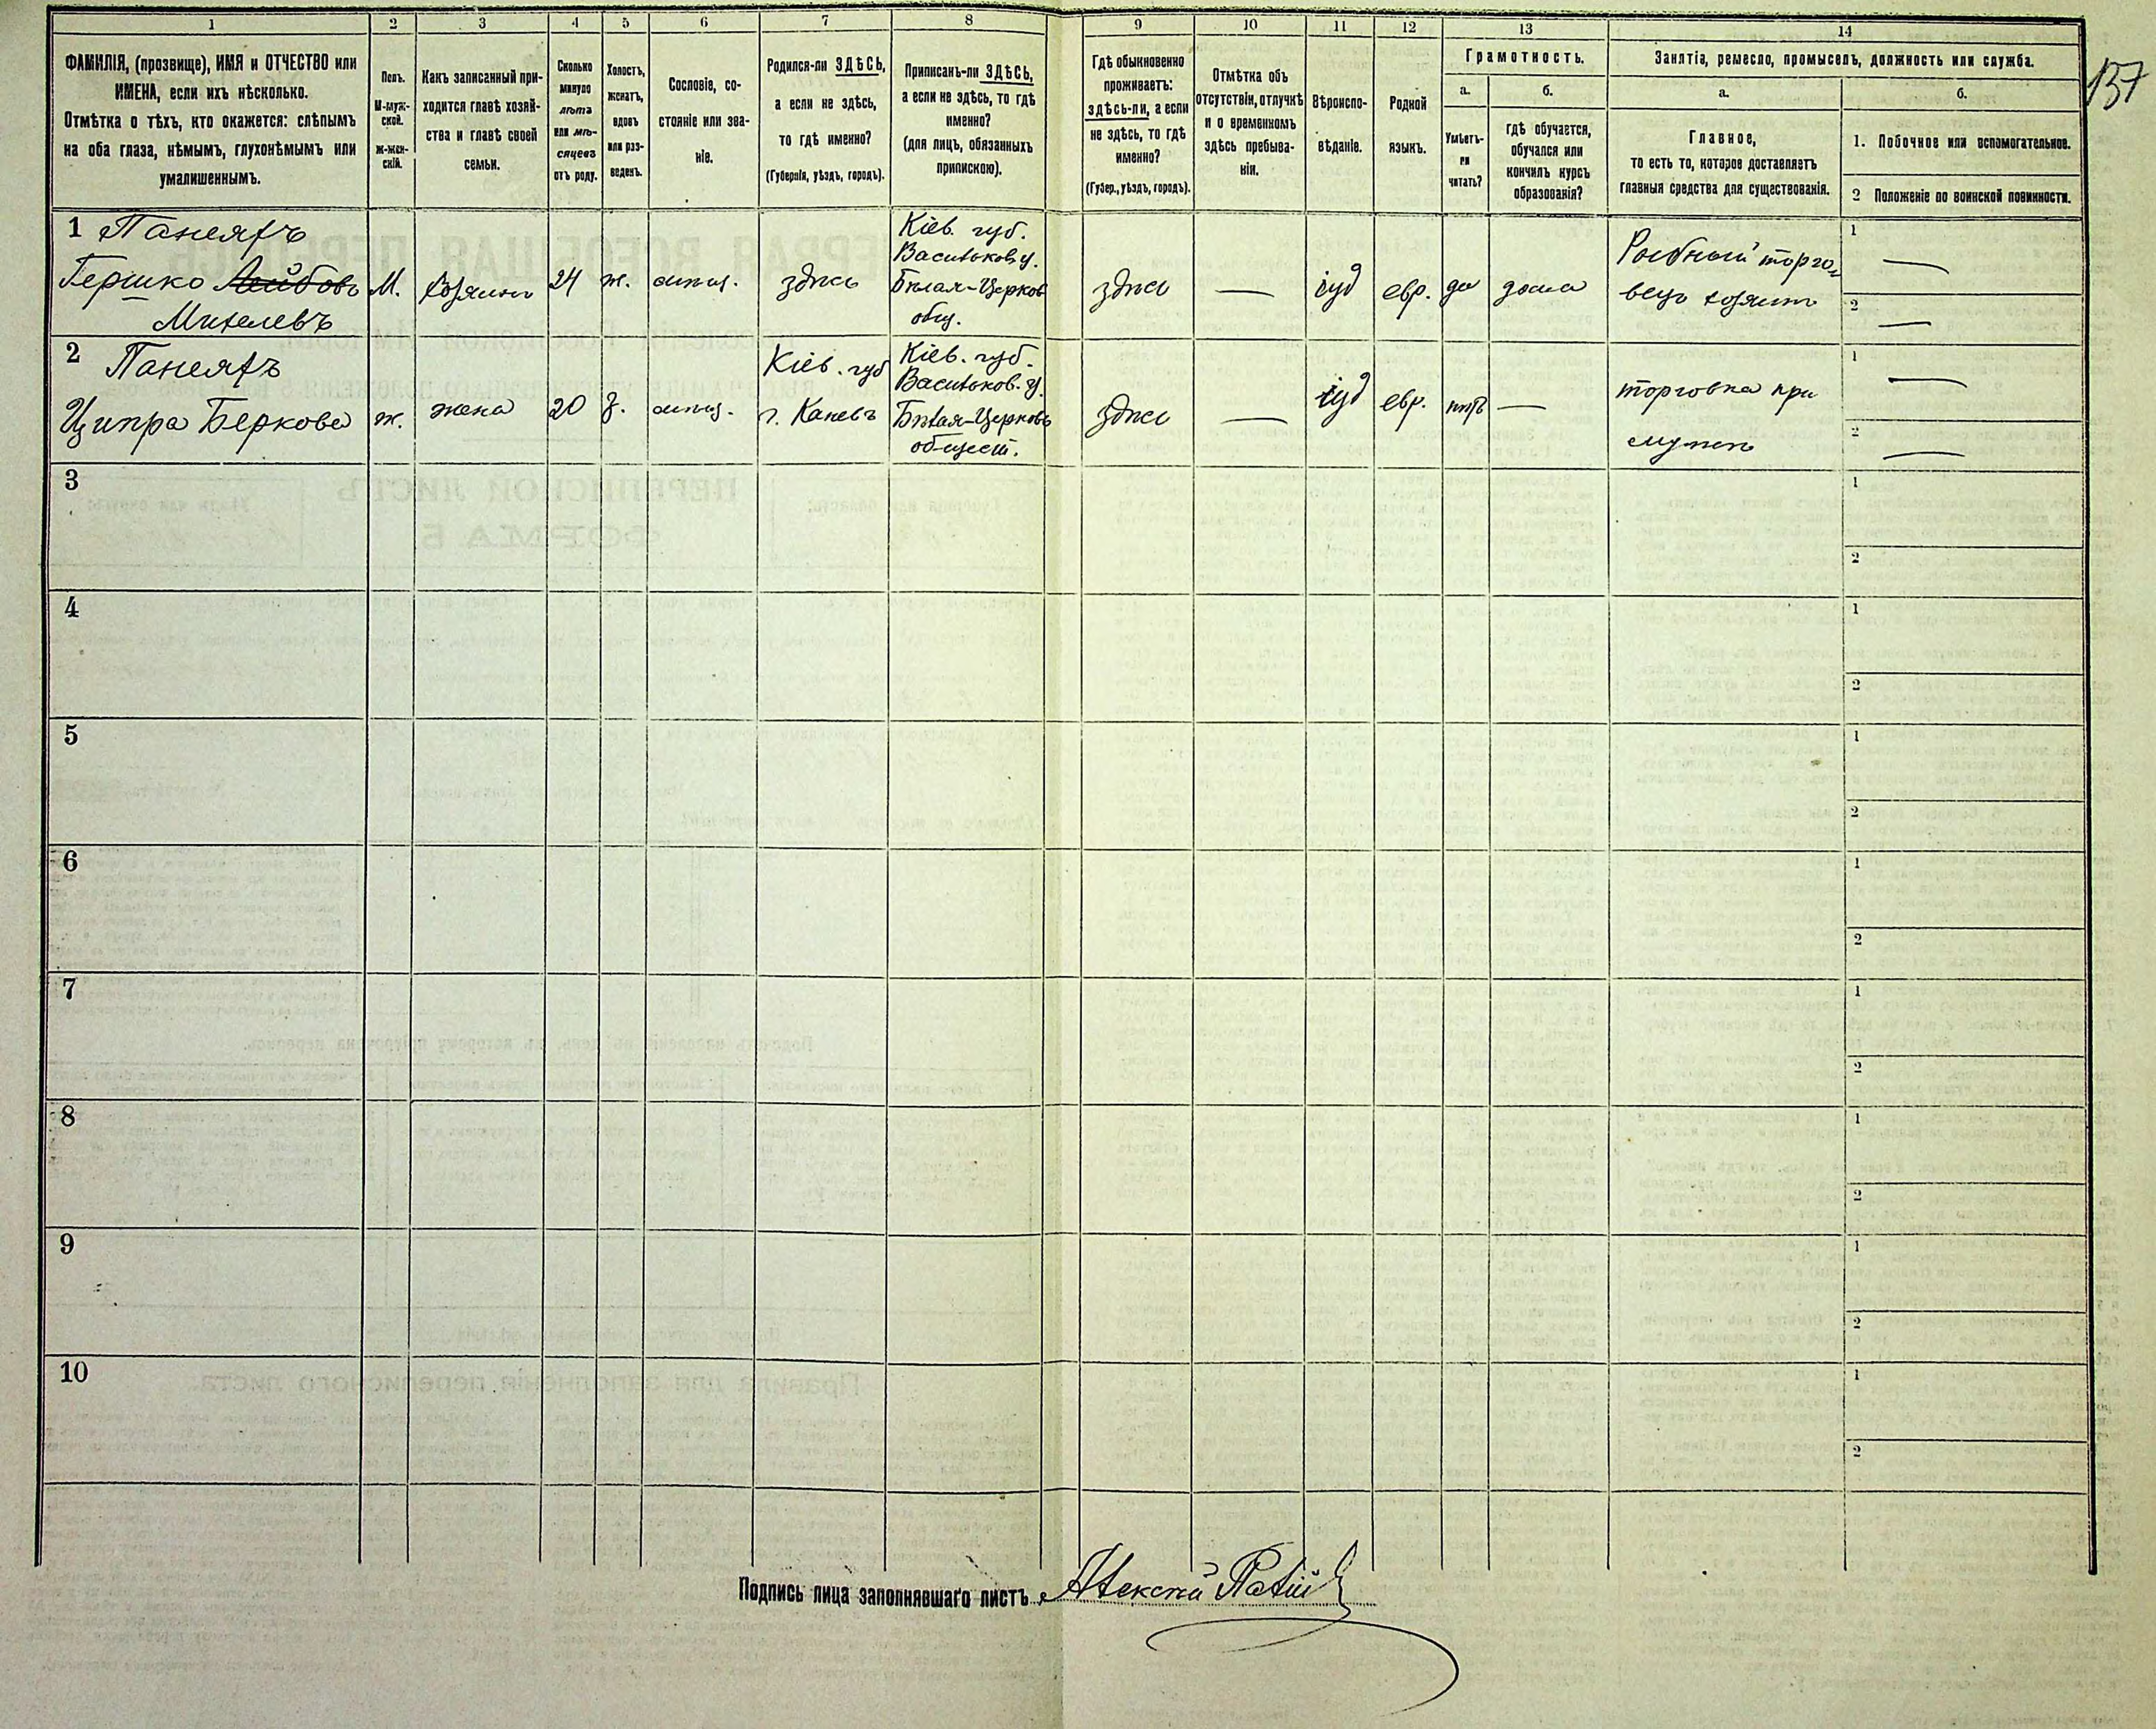 1 2 3 4 5 6 7 8 9 10 11 12 13 14
157
ФАМИЛІЯ, (прозвище), ИМЯ и ОТЧЕСТВО или
ИМЕНА, если ихъ нѣсколько.
Отмѣтка о тѣхъ, кто окажется: слѣпымъ
на оба глаза, нѣмымъ, глухонѣмымъ или
умалишеннымъ.
Полъ.
М-муж-
ской.
Ж-жен-
скій.
Какъ записанный при-
ходится главѣ хозяй-
ства и главѣ своей
семьи.
Сколько
минуло
лѣтъ
или мѣ-
сяцевъ
отъ роду.
Холостъ,
женатъ,
вдовъ
или раз-
веденъ.
Сословіе, со-
стояніе или зва-
ніе.
Родился-ли ЗДѢСЬ,
а если не здѣсь,
то гдѣ именно?
(Губернія, уѣздъ, городъ).
Приписанъ-ли ЗДѢСЬ,
а если не здѣсь, то гдѣ
именно?
(для лицъ, обязанныхъ
припискою).
Гдѣ обыкновенно
проживаетъ:
здѣсь-ли, а если
не здѣсь, то гдѣ
именно?
(Губер., уѣздъ, городъ).
Отмѣтка объ
отсутствіи, отлучкѣ
и о временномъ
здѣсь пребыва-
ніи.
Вѣроиспо-
вѣданіе.
Родной
языкъ.
Грамотность.
а.
Умѣетъ-
ли
читать?
б.
гдѣ обучается,
обучался или
кончилъ курсъ
образованія?
Занятія, ремесло, промыселъ, должность или служба.
а.
Главное,
то есть то, которое доставляетъ
главныя средства для существованія.
б.
1. Побочное или вспомогательное.
2 Положеніе по воинской повинности.
1 Панеяхъ
Гершко Лейбовъ
Михелевъ
М.
хозяинъ
24
ж.
мѣщ.
здѣсь
Кіев. губ.
Васильков у.
Бѣлая-Церков
общ.
здѣсь
—
іуд
евр.
да
дома
Рыбный торго-
вецъ хозяинъ
1 —
2 —
2 Панеяхъ
Ципра Беркова
ж.
жена
20
з.
мѣщ.
Кіев. губ
г. Каневъ
Кіев. губ.
Васильков. у.
Бѣлая-Церковь
общест.
здѣсь
—
іуд
евр.
нѣтъ
—
торговка при
мужѣ
1 —
2 —
3
1
2
4
1
2
5
1
2
6
1
2
7
1
2
8
1
2
9
1
2
10
1
2
Подпись лица заполнявшаго листъ Алексѣй